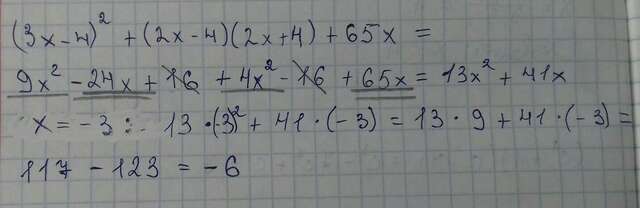 (3x-4)² + (2x-4)(2x+4) + 65x =
9x² - 24x + 16 + 4x² - 16 + 65x = 13x² + 41x
x = -3 : 13 · (-3)² + 41 · (-3) = 13 · 9 + 41 · (-3) =
117 - 123 = -6